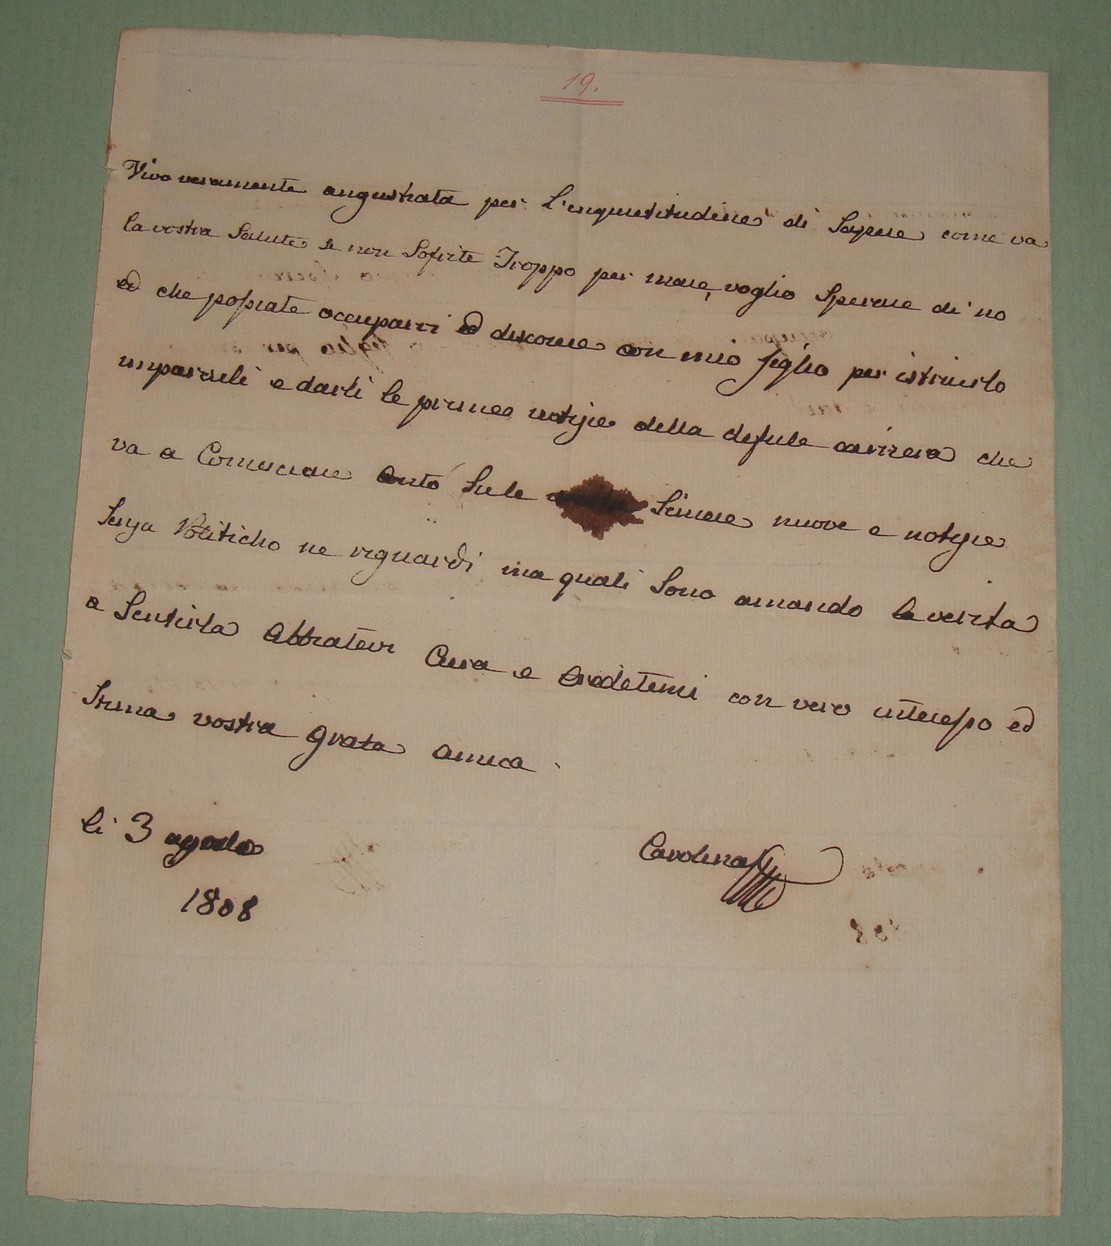 19.
Vivo veramente angustiata per l'inquietitudine di Sapere come va
la vostra Salute se non Sofrite Troppo per mare, voglio Sperare di no
ed che possiate occuparvi ed discorere con mio figlio per istruirlo
impararli e darli le prime notizie della dificile carriera che
va a Cominciare conto Sule Sincere nuove e notizie
Senza Politicho ne riguardi ma quali Sono amando la verita
a Sentirla Abbiatevi Cura e Credetemi con vero interesso ed
Stima vostra grata amica.
li 3 agosto
1808
Carolina